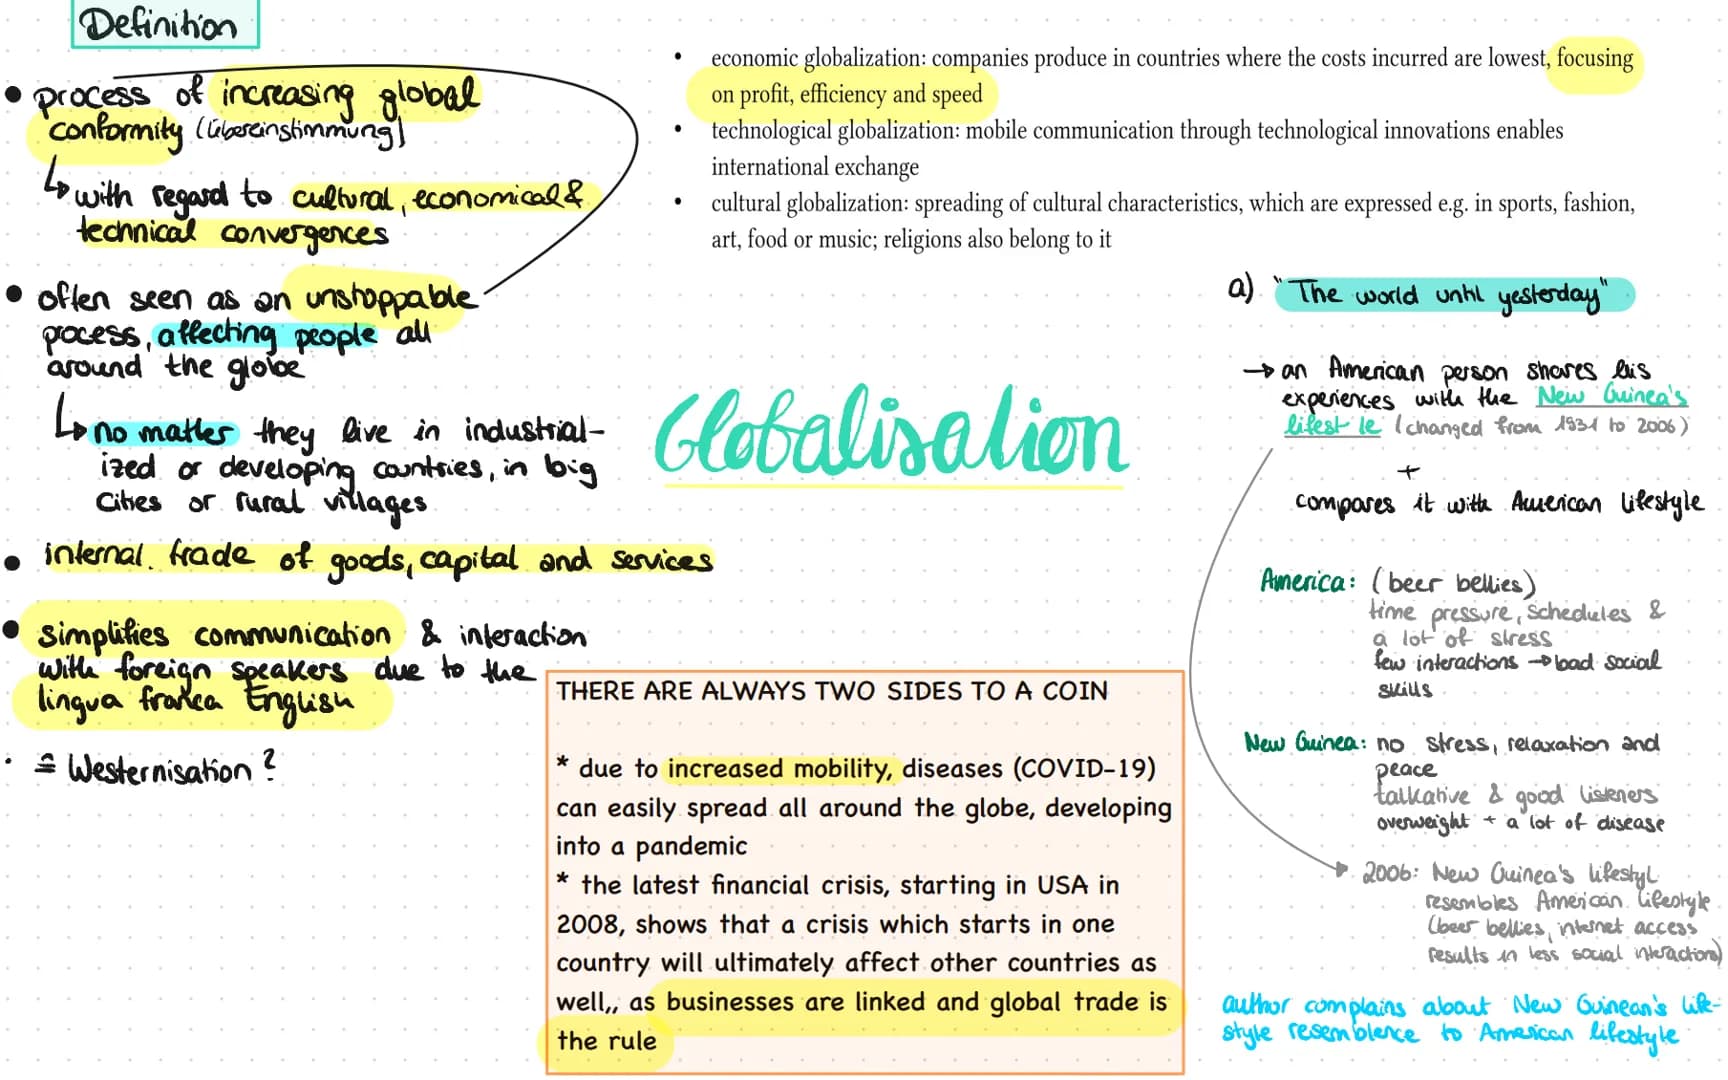 Definition
• process of increasing global
conformity (Übereinstimmung)
↳ with regard to cultural, economical &
technical convergences
• often seen as an unstoppable
pocess, affecting people all
around the globe
↳ no matter they live in industrial-
ized or developing countries, in big
cities or rural villages
• internal. trade of goods, capital and services
• simplifies communication & interaction
with foreign speakers due to the
lingua franca English
· ≙ Westernisation?
• economic globalization: companies produce in countries where the costs incurred are lowest, focusing
on profit, efficiency and speed
• technological globalization: mobile communication through technological innovations enables
international exchange
• cultural globalization: spreading of cultural characteristics, which are expressed e.g. in sports, fashion,
art, food or music; religions also belong to it
Globalisation
THERE ARE ALWAYS TWO SIDES TO A COIN
* due to increased mobility, diseases (COVID-19)
can easily spread all around the globe, developing
into a pandemic
* the latest financial crisis, starting in USA in
2008, shows that a crisis which starts in one
country will ultimately affect other countries as
well,, as businesses are linked and global trade is
the rule
a) "The world until yesterday"
→ an American person shares his
experiences with the New Guinea's
lifest le (changed from 1931 to 2006)
+
compares it with American lifestyle
America: (beer bellies)
time pressure, schedules &
a lot of stress
few interactions → bad social
skills
New Guinea: no stress, relaxation and
peace
talkative & good listeners
overweight + a lot of disease
2006: New Guinea's lifestyl
resembles American lifestyle
(beer bellies, internet access
results in less social interactions)
author complains about New Guinean's life-
style resemblence to American lifestyle